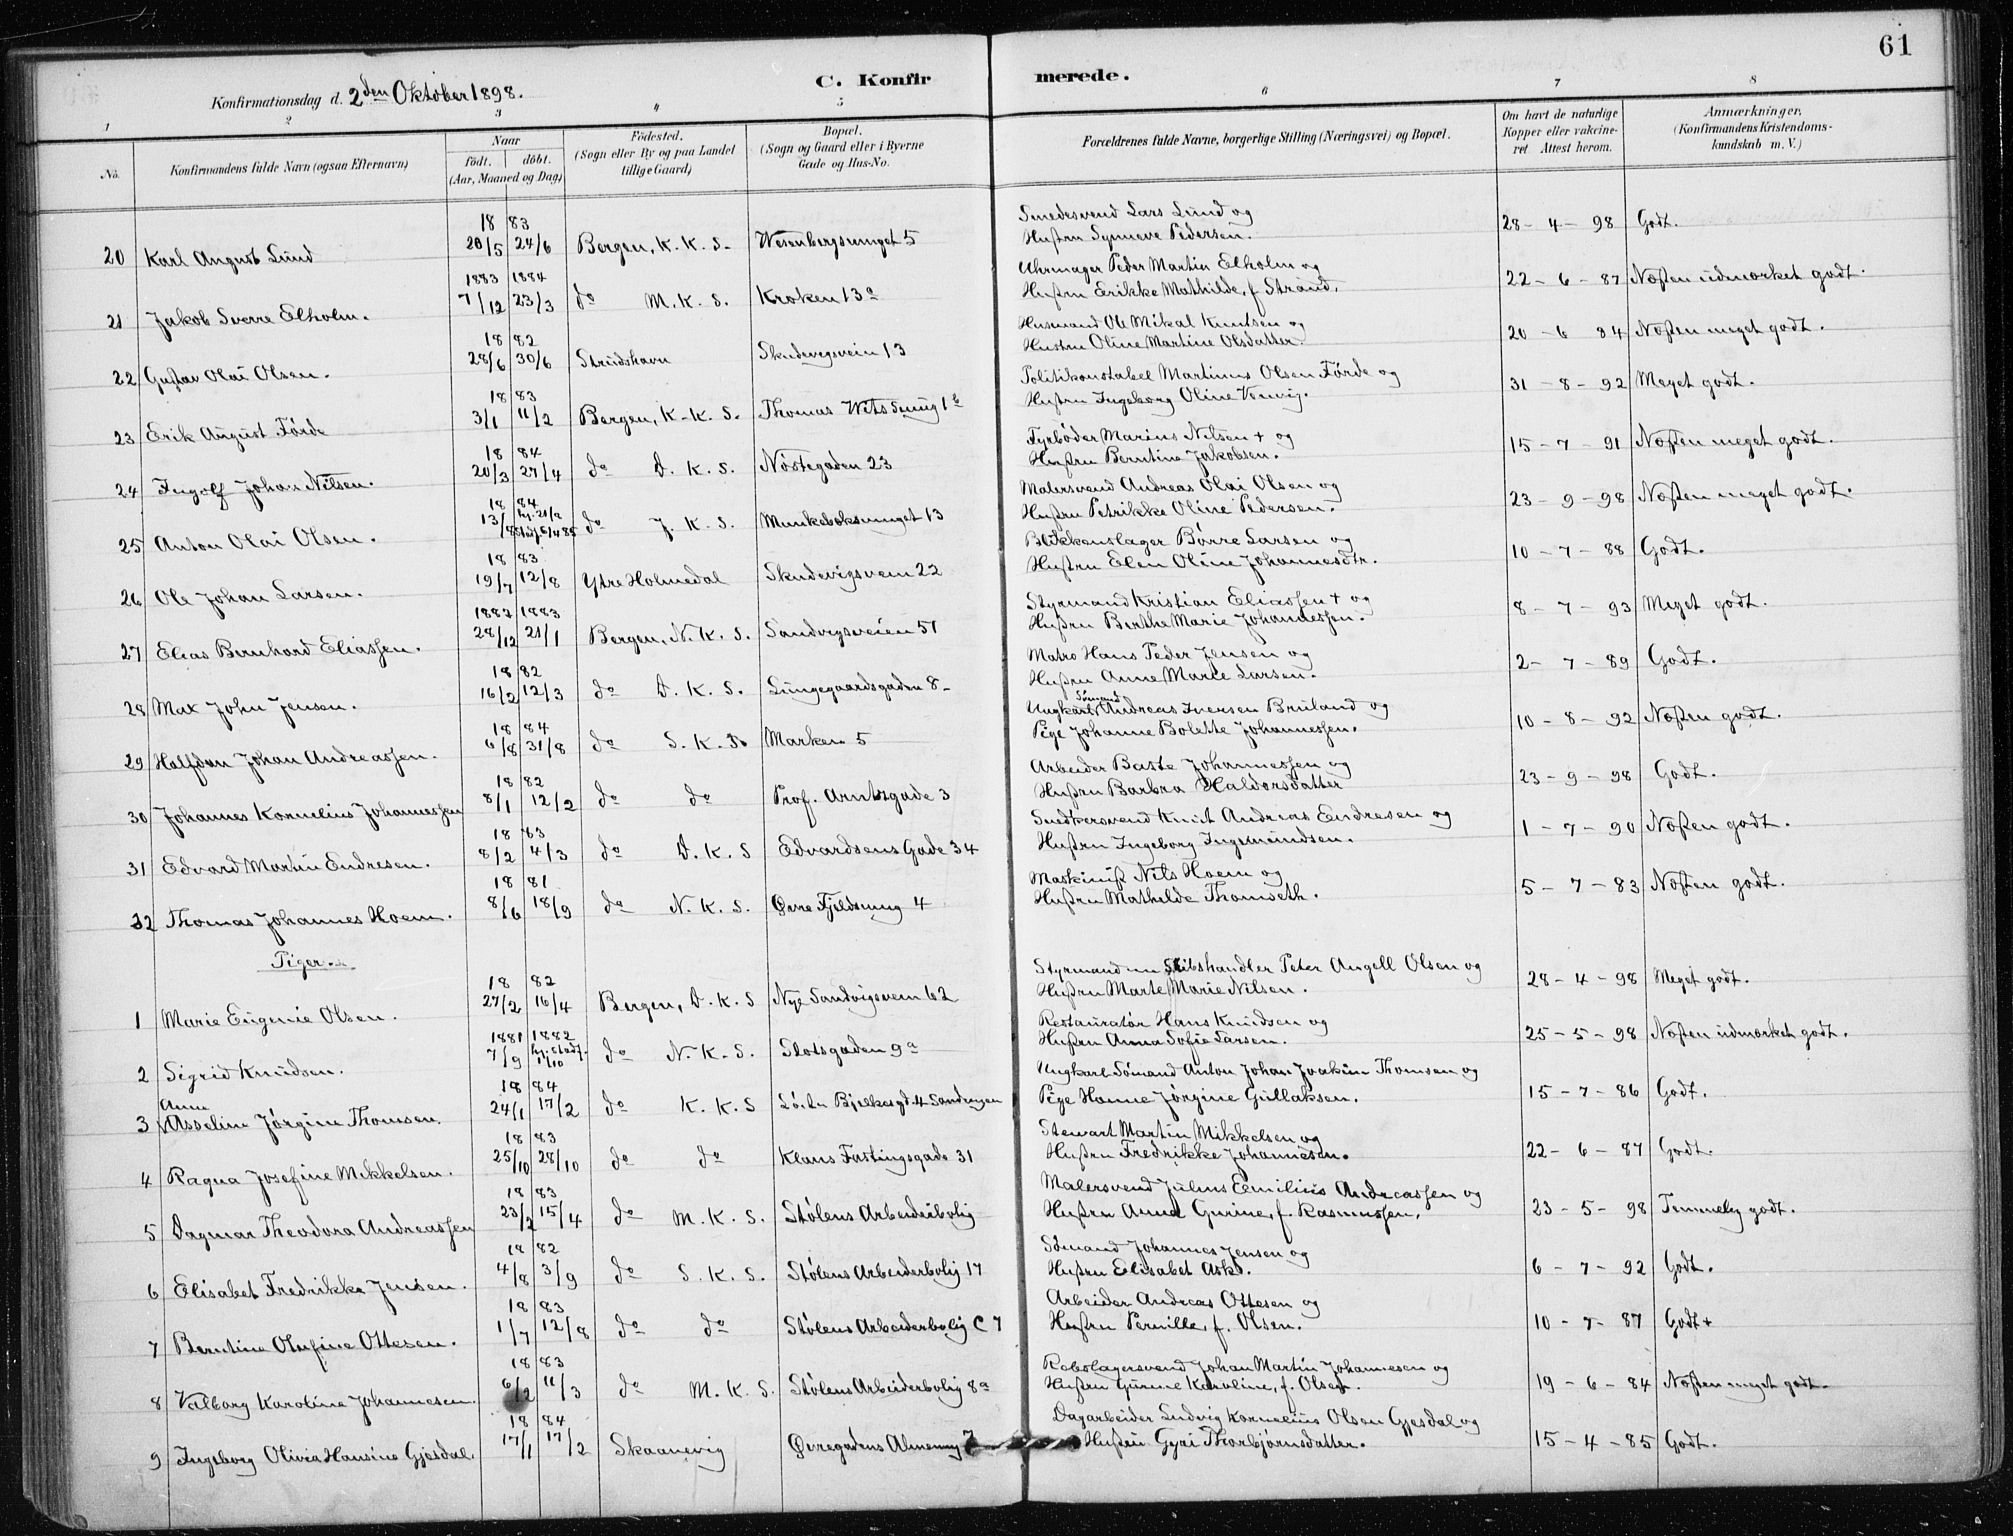 61
C. Konfirmerede.
Konfirmationsdag d. 2den Oktober 1898.
1 2 3 4 5 6 7 8
No. Konfirmandens fulde Navn (ogsaa Efternavn) Naar födt. döbt. (Aar, Maaned og Dag) Födested. (Sogn eller By og paa Landet tillige Gaard) Bopæl. (Sogn og Gaard eller i Byerne Gade og Hus-No. Forældrenes fulde Navne, borgerlige Stilling (Næringsvei) og Bopæl. Om havt de naturlige Kopper eller vakcineret Attest herom. Anmærkninger, (Konfirmandens Kristendomskundskab m. V.)
20 Karl August Lund 1883 20/5 24/6 Bergen, K. K. S. Wesenbergsmuget 5 Smedesvend Lars Lund og Hustru Synneve Pedersen. 28-4-98 Godt.
21 Jakob Sverre Elholm. 1883 7/12 1884 23/3 do M. K. S. Kroken 13a Uhrmager Peder Martin Elholm og Hustru Erikke Mathilde, f. Strand. 22-6-87 Næsten udmærket godt.
22 Gustav Olai Olsen. 1882 28/6 30/6 Strudshavn Skudevigsvein 13 Husmand Ole Mikal Knutsen og Hustru Oline Martine Olsdatter. 20-6 84 Næsten meget godt.
23 Erik August Førde 1883 3/1 11/2 Bergen, K. K. S. Thomas Wits Smug 1b Politikonstabel Martinus Olsen Førde og Hustru Ingeborg Oline 31-8-92 Meget godt.
24 Ingolf Johan Nilsen. 1884 20/3 27/4 do D. K. S. Nøstegaden 23 Fyrbøder Marius Nilsen + og Hustru Berntine Jakobsen. 15-7-91 Næsten meget godt.
25 Anton Olai Olsen. 1884 do J. K. S. Munkeboksmuget 13 Malersvend Andreas Olai Olsen og Hustru Petrikke Oline Pedersen. 23-9-98 Næsten meget godt.
26 Ole Johan Larsen. 1883 19/7 12/8 Ytre Holmedal Skudevigsvein 22 Blikkenslager Børre Larsen og Hustru Elen Oline Johannesdtr. 10-7-88 Godt.
27 Elias Bernhard Eliassen. 1882 28/12 1883 21/1 Bergen, N. K. S. Sandvigsveien 51 Styrmand Kristian Eliassen + og Hustru Berthe Marie Johannessen. 8-7-93 Meget godt.
28 Max John Jensen. 1882 16/2 12/3 do D. K. S. Lungegaardsgaden 8 Matro Hans Peder Jensen og Hustru Anne Marie Larsen. 2-7-89 Godt.
29 Halfdan Johan Andreassen. 1884 6/8 31/8 do S. K. S. Marken 5 Ungkarl Sømand Andreas Iversen Bruland og Pige Johanne Bolette Johannessen. 10-8-92 Næsten godt.
30 Johannes Kornelius Johannessen 1882 8/1 12/2 do do Prof. Arntzgade 3 Arbeider Baste Johannessen og Hustru Barbra Haldorsdatter 23-9-98 Godt.
31 Edvard Martin Endresen. 1883 8/2 4/3 do D. K. S Edvardsens Gade 34 Snedkersvend Knut Andreas Endresen og Hustru Ingeborg Ingemundsen. 1-7-90 Næsten godt.
32 Thomas Johannes Hoem. 1881 8/6 18/9 do N. K. S. Øvre Fjeldsmug 4 Maskinist Nils Hoem og Hustru Mathilde Thomseth. 5-7-83 Næsten godt.
Piger.
1 Marie Eugenie Olsen. 1882 27/2 16/4 Bergen, D. K. S Nye Sandvigsvein 62 Styrmand Skibshandler Peter Angell Olsen og Hustru Marte Marie Nilsen. 28-4-98 Meget godt.
2 Sigrid Knudsen. 1881 7/9 1882 hj. stadf. 1/10 do N. K. S. Slotsgaden 9a Restauratør Hans Knudsen og Hustru Anna Sofie Larsen. 25-5-98 Næsten udmærket godt.
3 Anne Asseline Jørgine Thomsen. 1884 24/1 17/2 do K. K. S Bjelkesgd. 4 Sandvigen Ungkarl Sømand Anton Johan Joakim Thomsen og Pige Hanne Jørgine Gullaksen. 15-7-86 Godt.
4 Ragna Josefine Mikkelsen. 1883 25/10 28/10 do do Klaus Fastingsgade 31 Stewart Martin Mikkelsen og Hustru Fredrikke Johannesen. 22-6-87 Godt.
5 Dagmar Theodora Andreassen 1883 23/2 15/4 do M. K. S. Stølens Arbeiderbolig Malersvend Julius Emilius Andreassen og Hustru Anna Gurine, f. Rasmussen. 23-5-98 Temmelig godt.
6 Elisabet Fredrikke Jensen. 1882 4/8 3/9 do S. K. S. Stølens Arbeiderbolig 17 Sømand Johannes Jensen og Hustru Elisabet Ask. 6-7-92 Godt.
7 Berntine Olufine Ottesen. 1883 1/7 12/8 do do Stølens Arbeiderbolig C 7 Arbeider Andreas Ottesen og Hustru Pernille, f. Olsen. 10-7-87 Godt+
8 Valborg Karoline Johannesen. 1883 6/2 11/3 do M. K. S. Stølens Arbeiderbolig 8a Rebslagersvend Johan Martin Johannesen og Hustru Gurine Karoline, f. Olsen. 19-6-84 Næsten meget godt.
9 Ingeborg Olivia Hansine Gjesdal. 1884 17/1 17/2 Skaanevig Øvregadens Almenning 7 Dagarbeider Ludvig Kornelius Olsen Gjesdal og Hustru Gyri Thorbjørnsdatter. 15-4-85 Godt.